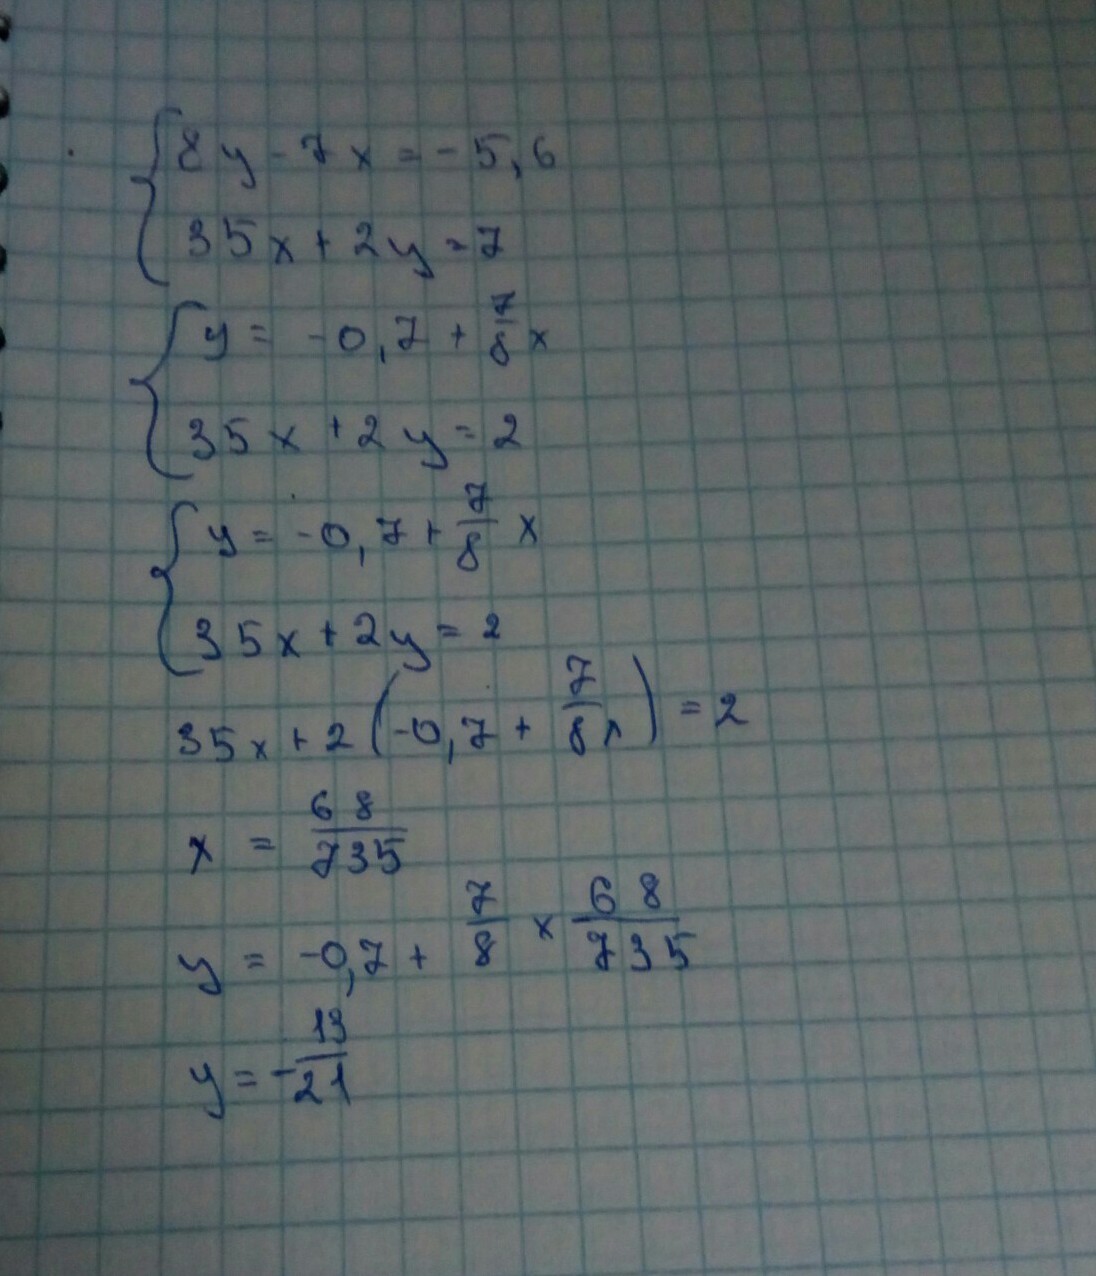 8y - 7x = -5,6
35x + 2y = 7
y = -0,7 + 7/8 x
35x + 2y = 2
y = -0,7 + 7/8 x
35x + 2y = 2
35x + 2(-0,7 + 7/8 x) = 2
x = 68/735
y = -0,7 + 7/8 x 68/735
y = -13/21